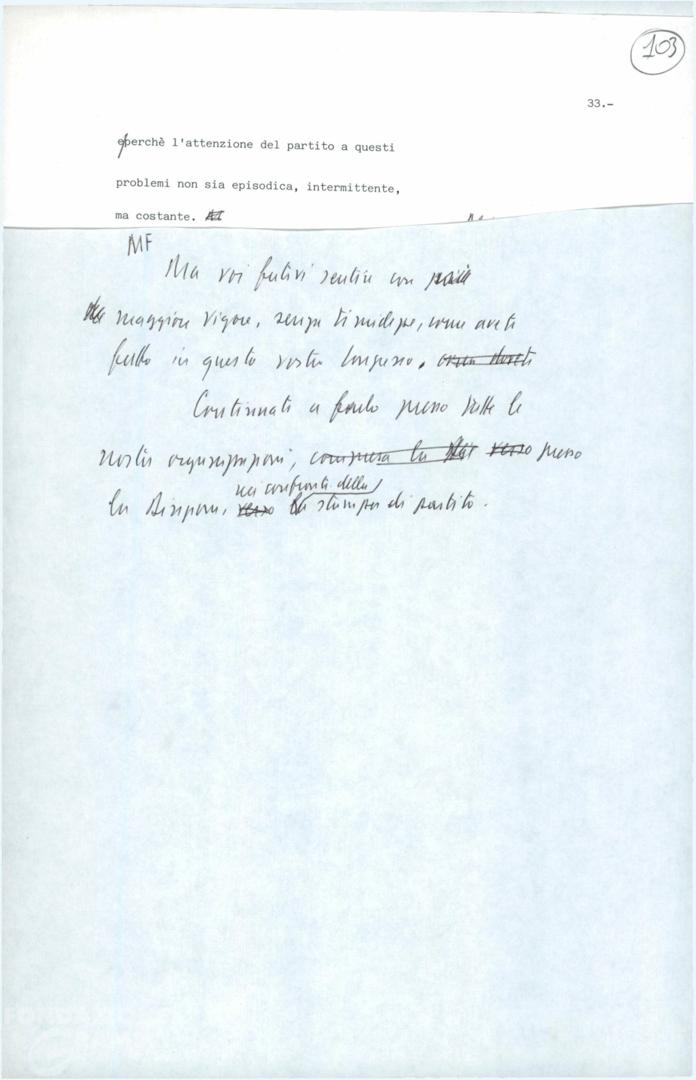 103
33.-
perchè l'attenzione del partito a questi
problemi non sia episodica, intermittente,
ma costante.
MF
Ma voi fatevi sentire con
maggior vigore, senza timidezze, come avete
fatto in questo vostro Congresso.
Continuate a farlo presso tutte le
nostre organizzazioni, presso
nei confronti della
la Direzione, verso la stampa di partito.